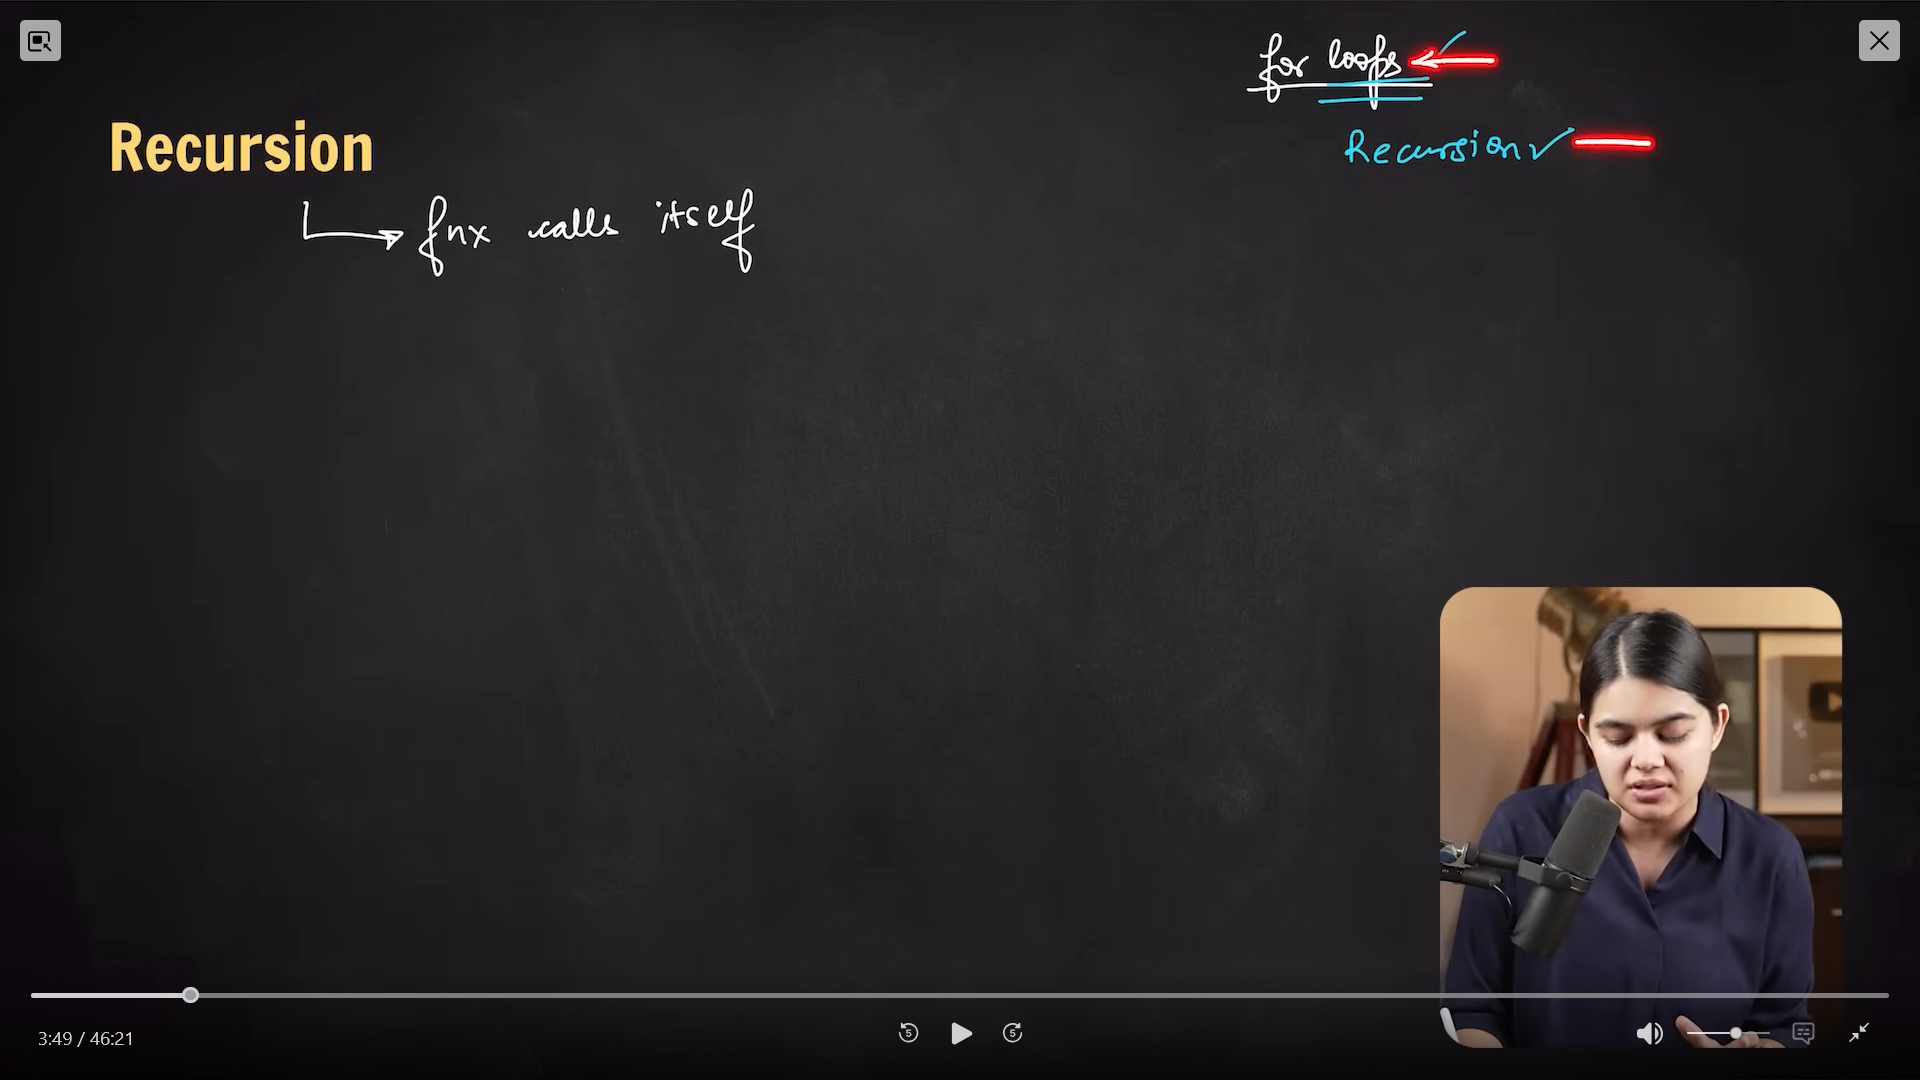 for loops
Recursion
Recursion
fnx calls itself
5
5
3:49 / 46:21